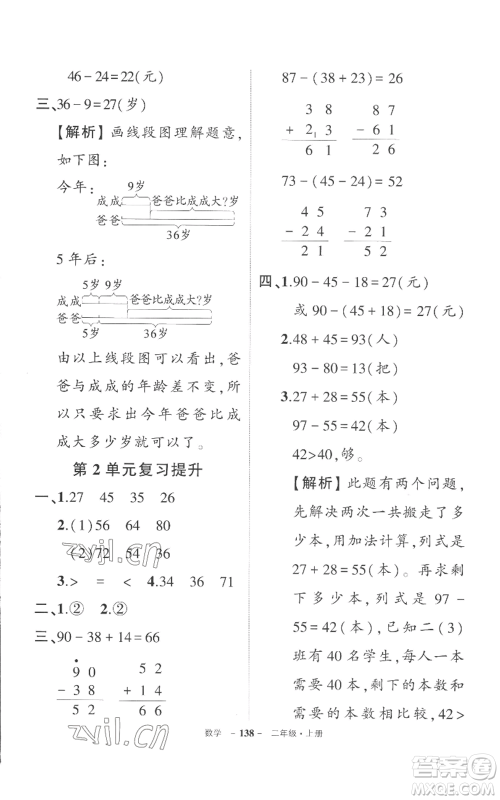 46－24＝22(元)
三、36－9＝27(岁)
【解析】画线段图理解题意，
如下图：
今年： 9岁
成成 爸爸比成成大?岁
爸爸
36岁
5 年后：
5岁 9岁
成成 爸爸比成成大?岁
爸爸
5岁 36岁
由以上线段图可以看出，爸
爸与成成的年龄差不变，所
以只要求出今年爸爸比成
成大多少岁就可以了。
第 2 单元复习提升
一、1.27 45 35 26
2.(1)56 64 80
(2)72 54 36
3.＞ ＝ ＜ 4.34 36 71
二、1.② 2.②
三、90－38＋14＝66
9 0 5 2
－ 3 8 ＋ 1 4
5 2 6 6
87－(38＋23)＝26
3 8 8 7
＋ 2 1 3 － 6 1
6 1 2 6
73－(45－24)＝52
4 5 7 3
－ 2 4 － 2 1
2 1 5 2
四、1.90－45－18＝27(元)
或 90－(45＋18)＝27(元)
2.48＋45＝93(人)
93－80＝13(把)
3.27＋28＝55(本)
97－55＝42(本)
42>40，够。
【解析】此题有两个问题，
先解决两次一共搬走了多
少本，用加法计算，列式是
27＋28＝55(本)，再求剩
下多少本，列式是 97－
55＝42(本)。已知二(3)
班有 40 名学生，每人一本
需要 40 本，剩下的本数和
需要的本数相比较，42>
数学 －138－ 二年级·上册
zyjl.cn
zyjl.cn
答案圈
MXQE.COM